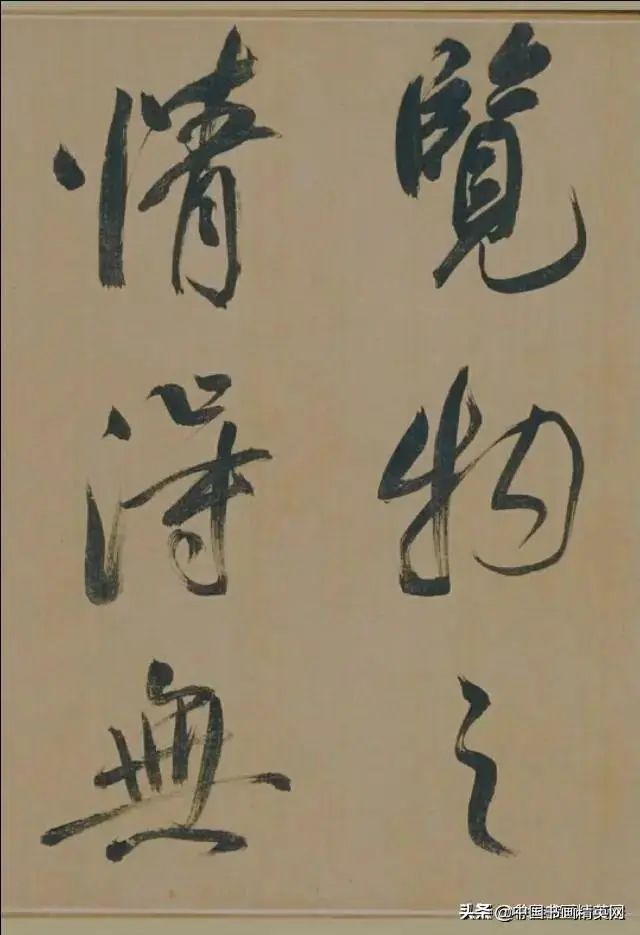 覽物之
情得無
头条@中国书画精英网